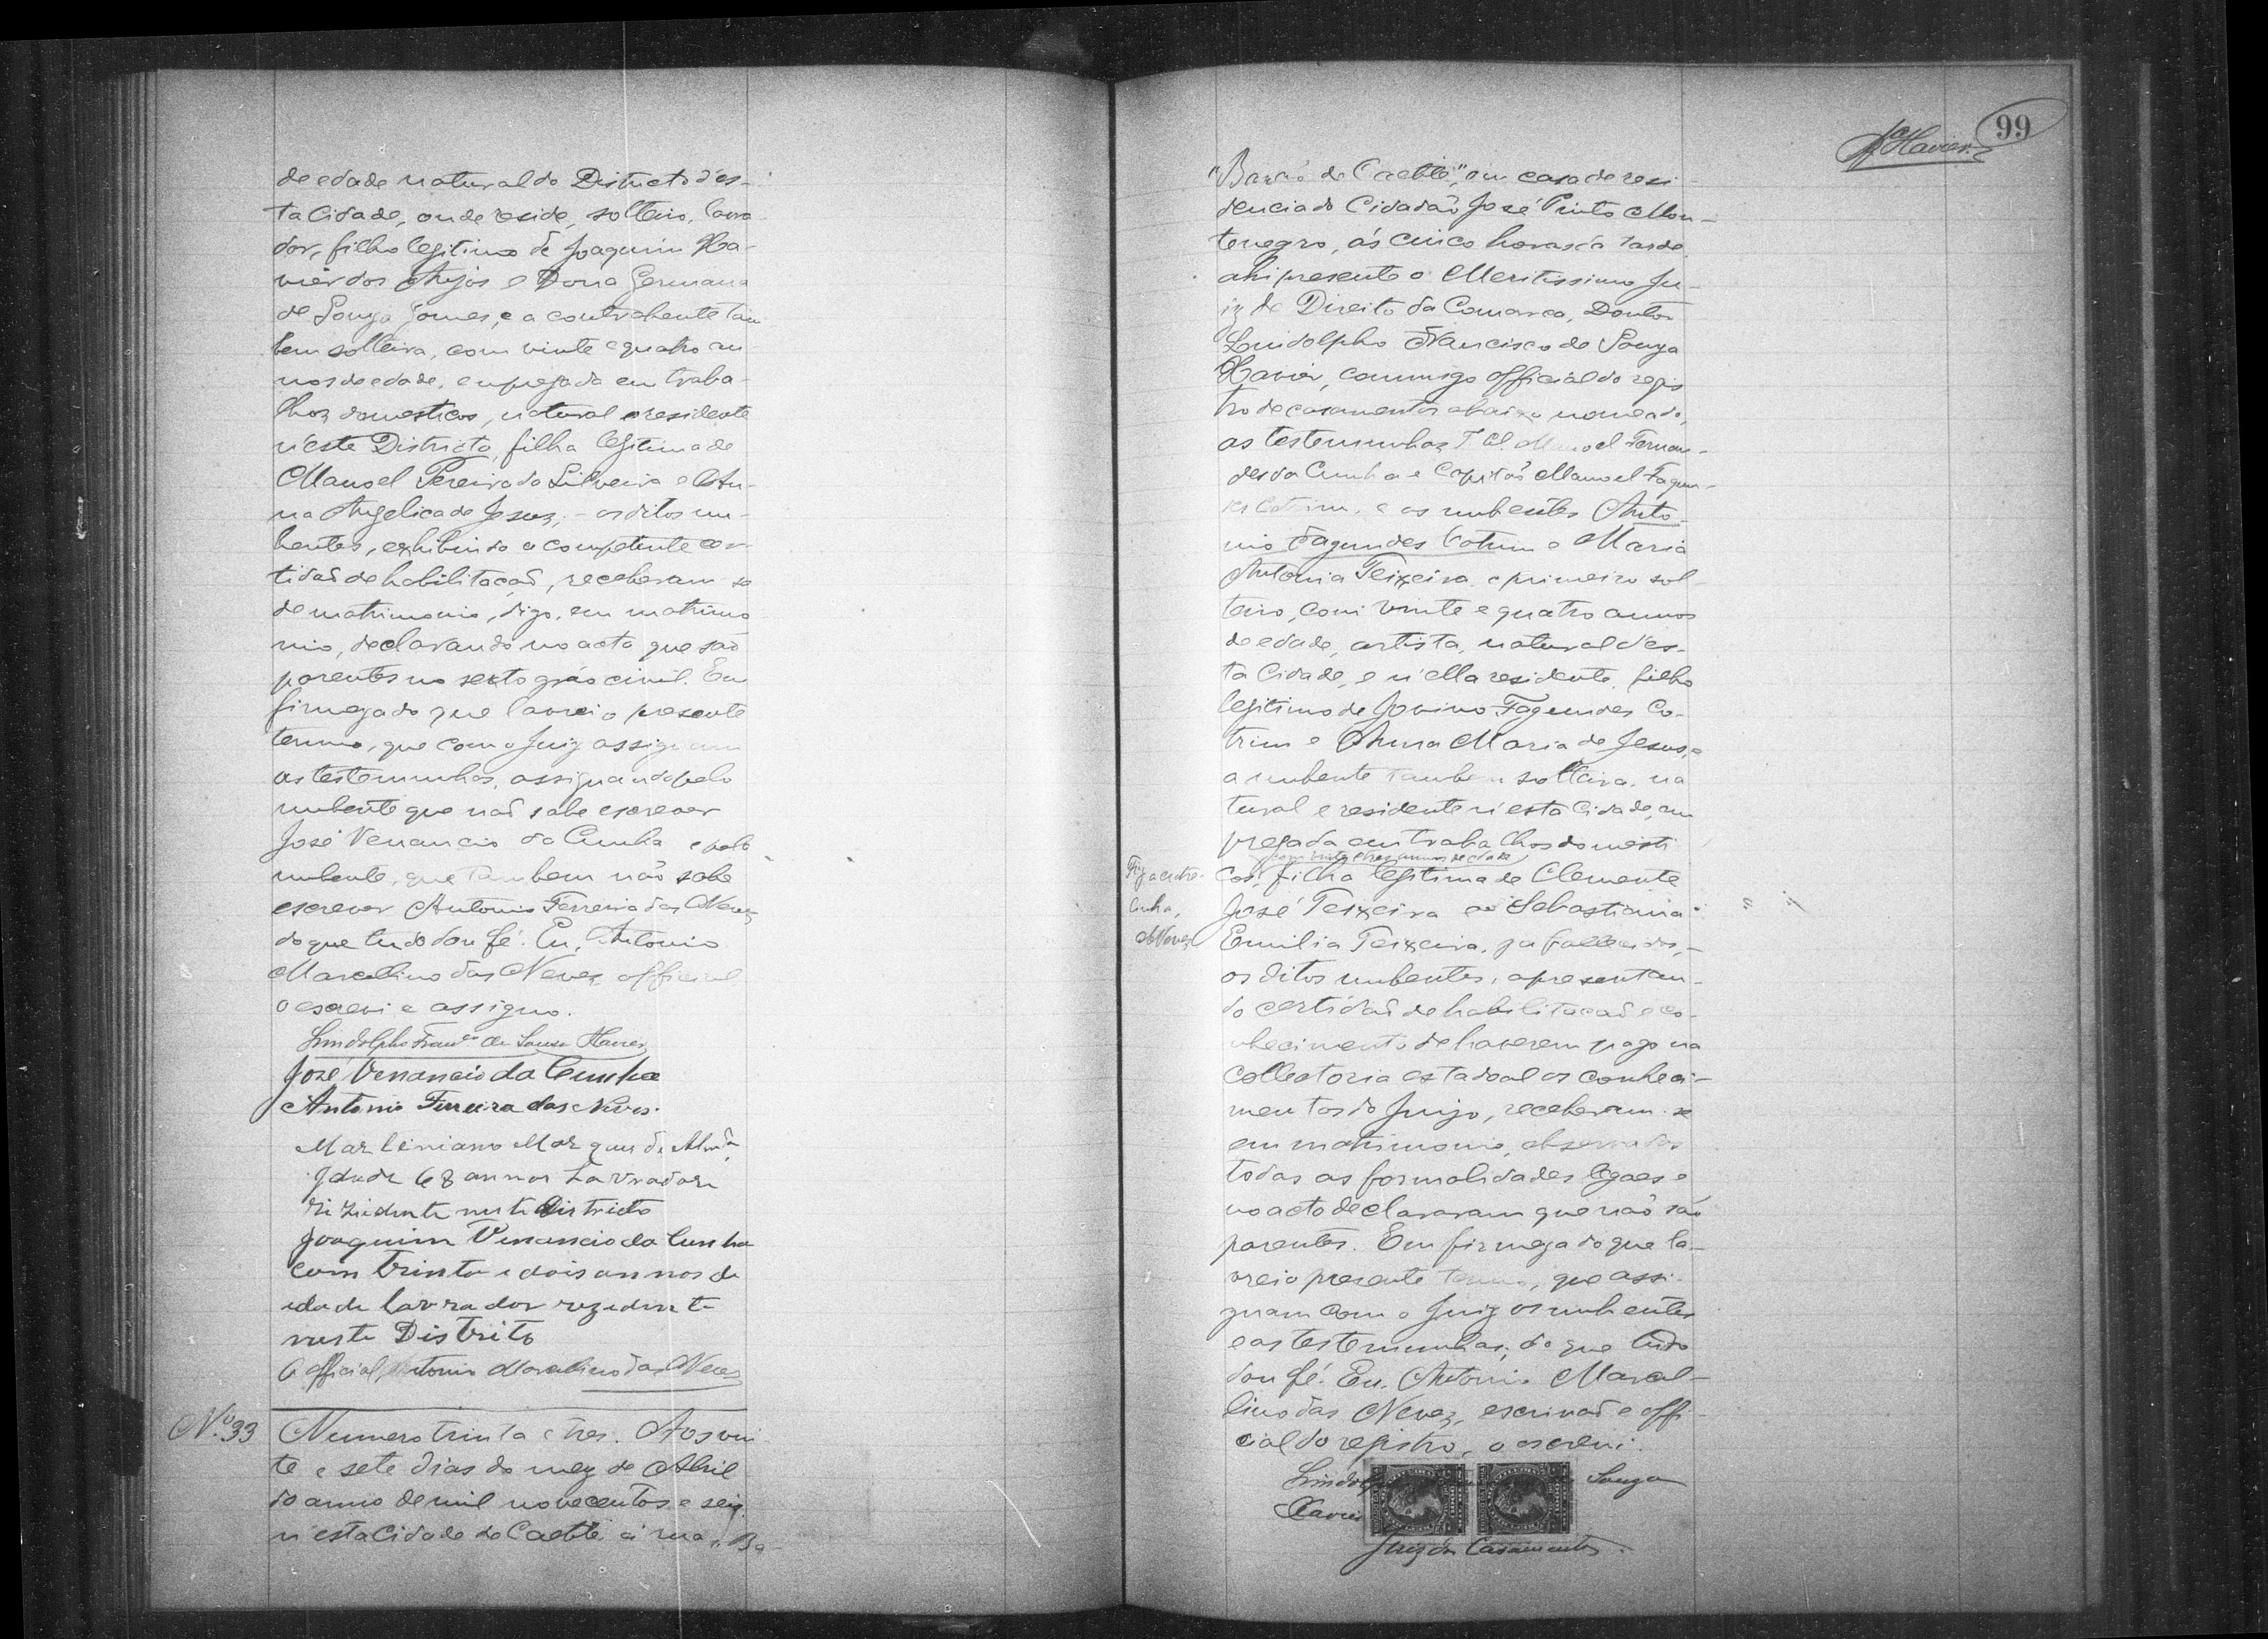 de edade natural do Districto d'es-
ta Cidade, onde reside, solteiro, lavra-
dor, filho legitimo de Joaquim Xa-
vier dos Anjos e Dona Germana
de Souza Gomes, e a contrahente tam
bem solteira, com vinte e quatro an-
nos de edade, empregada em traba-
lhos domesticos, natural e residente
n'este Districto, filha legitima de
Manoel Pereira da Silveira e An-
na Angelica de Jesus, - os ditos nu-
bentes, exhibindo a competente cer-
tidaõ de habilitaçaõ, receberam se
de matrimonio, digo, em matrimo
nio, declarando no acto que saõ
parentes no sexto gráo civil. Em
firmeza do que lavrei o presente
termo, que com o Juiz assignam
as testemunhas, assignando pelo
nubente que naõ sabe escrever
José Venancio da Cunha e pela
nubente, que tambem não sabe
escrever Antonio Ferreira das Neves
do que tudo dou fé. Eu, Antonio
Marcellino das Neves, official
o escrevi e assigno.
Lindolpho Franco de Souza Xavier
José Venancio da Cunha
Antonio Ferreira das Neves.
Marliniano Marques de
Idade 68 annos Lavrador
rizidente neste Districto
Joaquim Venancio da Cunha
com trinta e dois annos de
idade lavrador rezidente
neste Distrito
O official, Antonio Marcellino das Neves
Nº 33
Numero trinta e tres. Aos vin-
te e sete dias do mez de Abril
do anno de mil novecentos e seis,
n'esta Cidade de Caetité á rua "Ba-
99
Xavier
"Barão de Caetité", em casa de resi-
dencia do Cidadaõ José Pinto Mon-
tenegro, ás cinco horas da tarde,
ahi presente o Meritissimo Ju-
iz de Direito da Comarca, Doutor
Lindolpho Francisco de Souza
Xavier, commigo official do regis
tro de casamentos abaixo nomeado,
as testemunhas T. Cel. Manoel Fernan-
des da Cunha e Capitaõ Manoel Fagun-
des Cotrim, e os nubentes Anto-
nio Fagundes Cotrim e Maria
Antonia Teixeira, o primeiro sol-
teiro, com vinte e quatro annos
de edade, artista, natural d'es-
ta Cidade, e n'ella residente, filho
legitimo de Jovino Fagundes Co-
trim e Anna Maria de Jesus, e
a nubente tambem solteira, na
tural e residente n'esta Cidade, em
pregada em trabalhos domesti
com vinte e tres annos de edade
cos, filha legitima de Clemente
José Teixeira e Sebastiana
Emilia Teixeira, ja fallecidos, -
os ditos nubentes, apresentan-
do certidaõ de habilitaçaõ e co-
nhecimento de haverem pago na
collectoria estadoal os conheci-
mentos do Juizo, receberam-se
em matrimonio, observadas
todas as formalidades legaes e
no acto declararam que não são
parentes. Em firmeza do que la-
vrei o presente termo, que assi-
gnam com o Juiz os nubentes
e as testemunhas; do que tudo
dou fé. Eu, Antonio Marcel-
lino das Neves, escrivaõ e offi-
cial do registro, o escrevi.
Souza
Xavier
Juiz de Casamentos.
Fiz a entre-
linha,
Neves